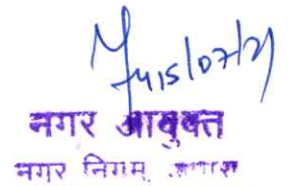 15/07/21
नगर आयुक्त
नगर निगम,